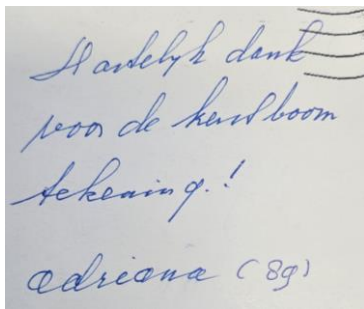 Hartelijk dank
voor de kerstboom
tekening.!
adriana (89)